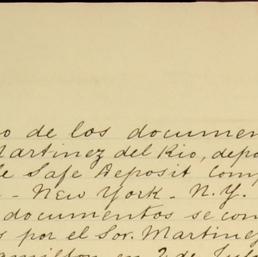 o de los documen
Martinez del Rio, depo
le Safe Deposit Comp
- New York - N.Y.
documentos se con
s por el Sor. Martinez
amilton en 2 de Jul